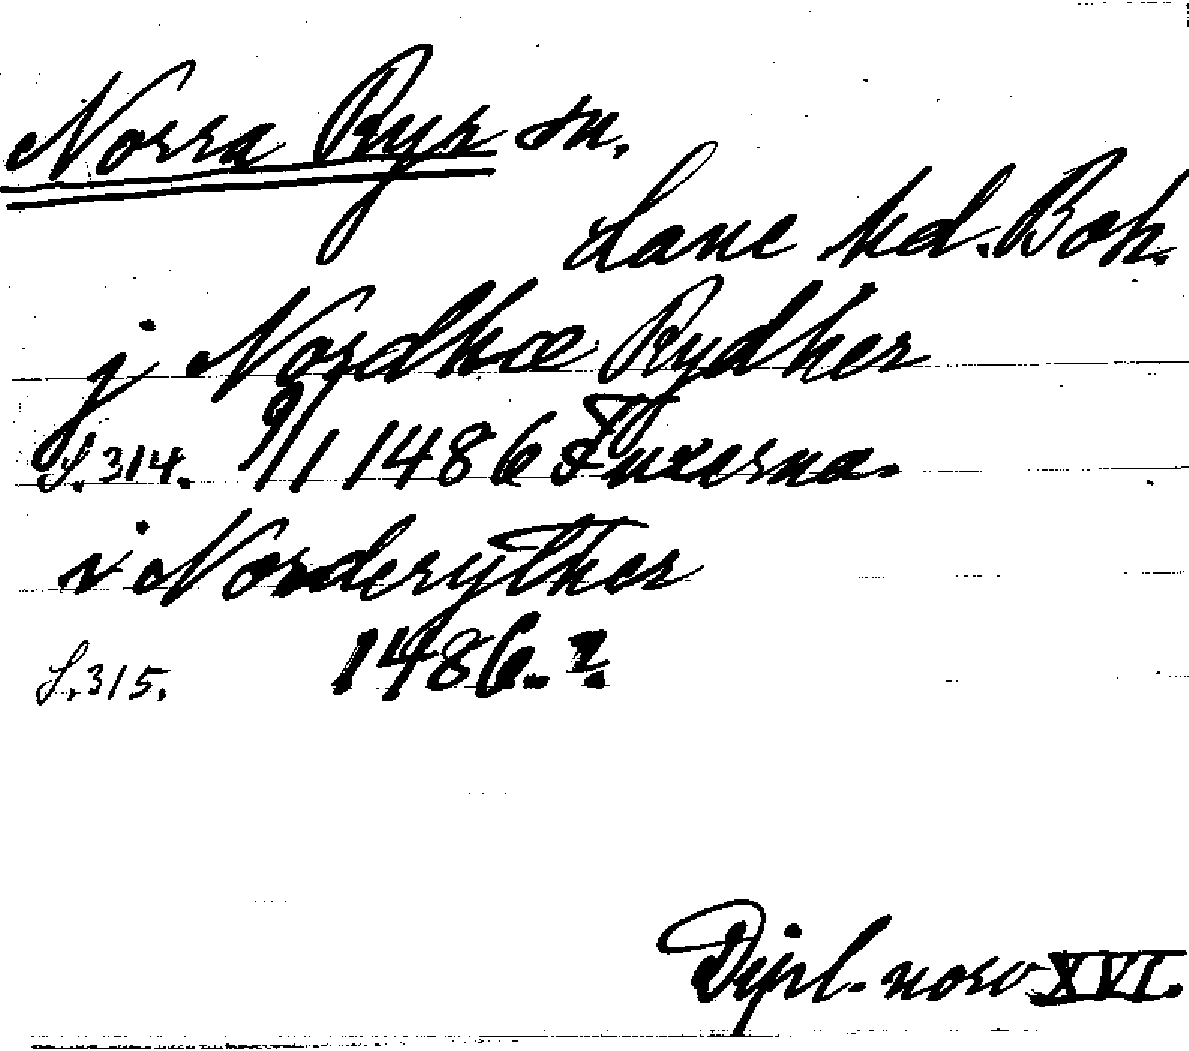 Norra Ryr sn.
Lane hd. Boh.
j Nordhœ Rydher
S.314. 9/1 1486 Fuxerna.
i Norderyther
S.315. 1486.
Dipl. norv XVI.